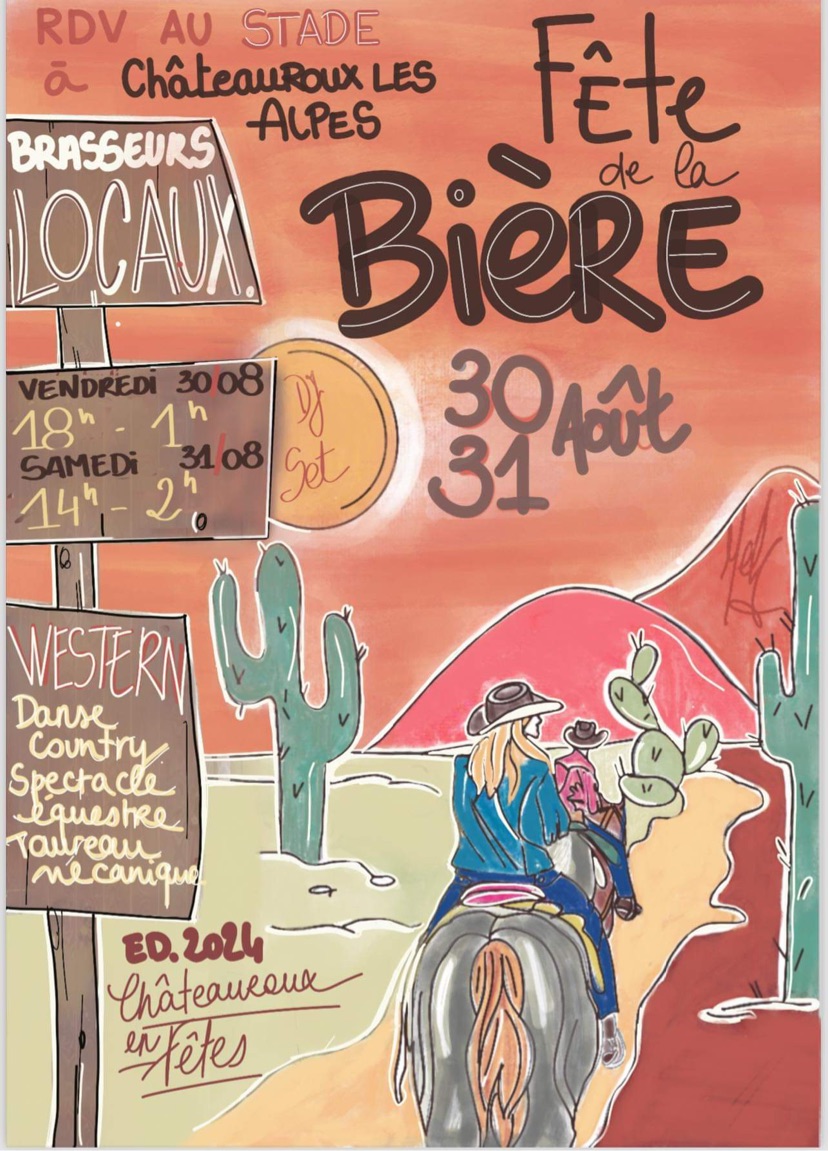 RDV AU STADE
à ChâteauRoux LES
ALPES
FÊte
de la
BièRE
BRASSEURS
LOCAUX.
VENDREDi 30/08
18h - 1h
SAMEDi 31/08
14h - 2h
DJ
Set
30
31 Août
WESTERN
Danse
Country
Spectacle
équestre
Taureau
mécanique
ED. 2024
Châteauroux
en Fêtes